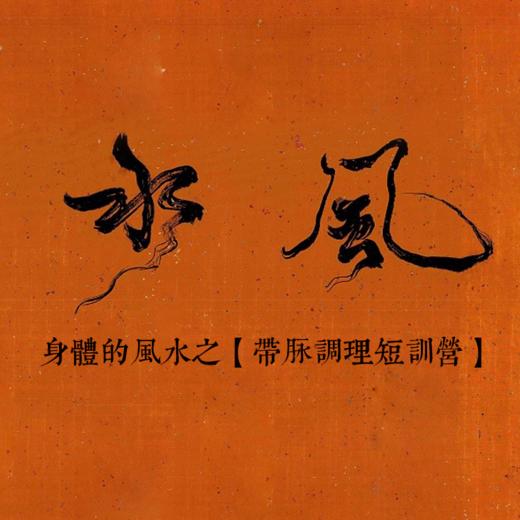 風水
身體的風水之【帶脈調理短訓營】